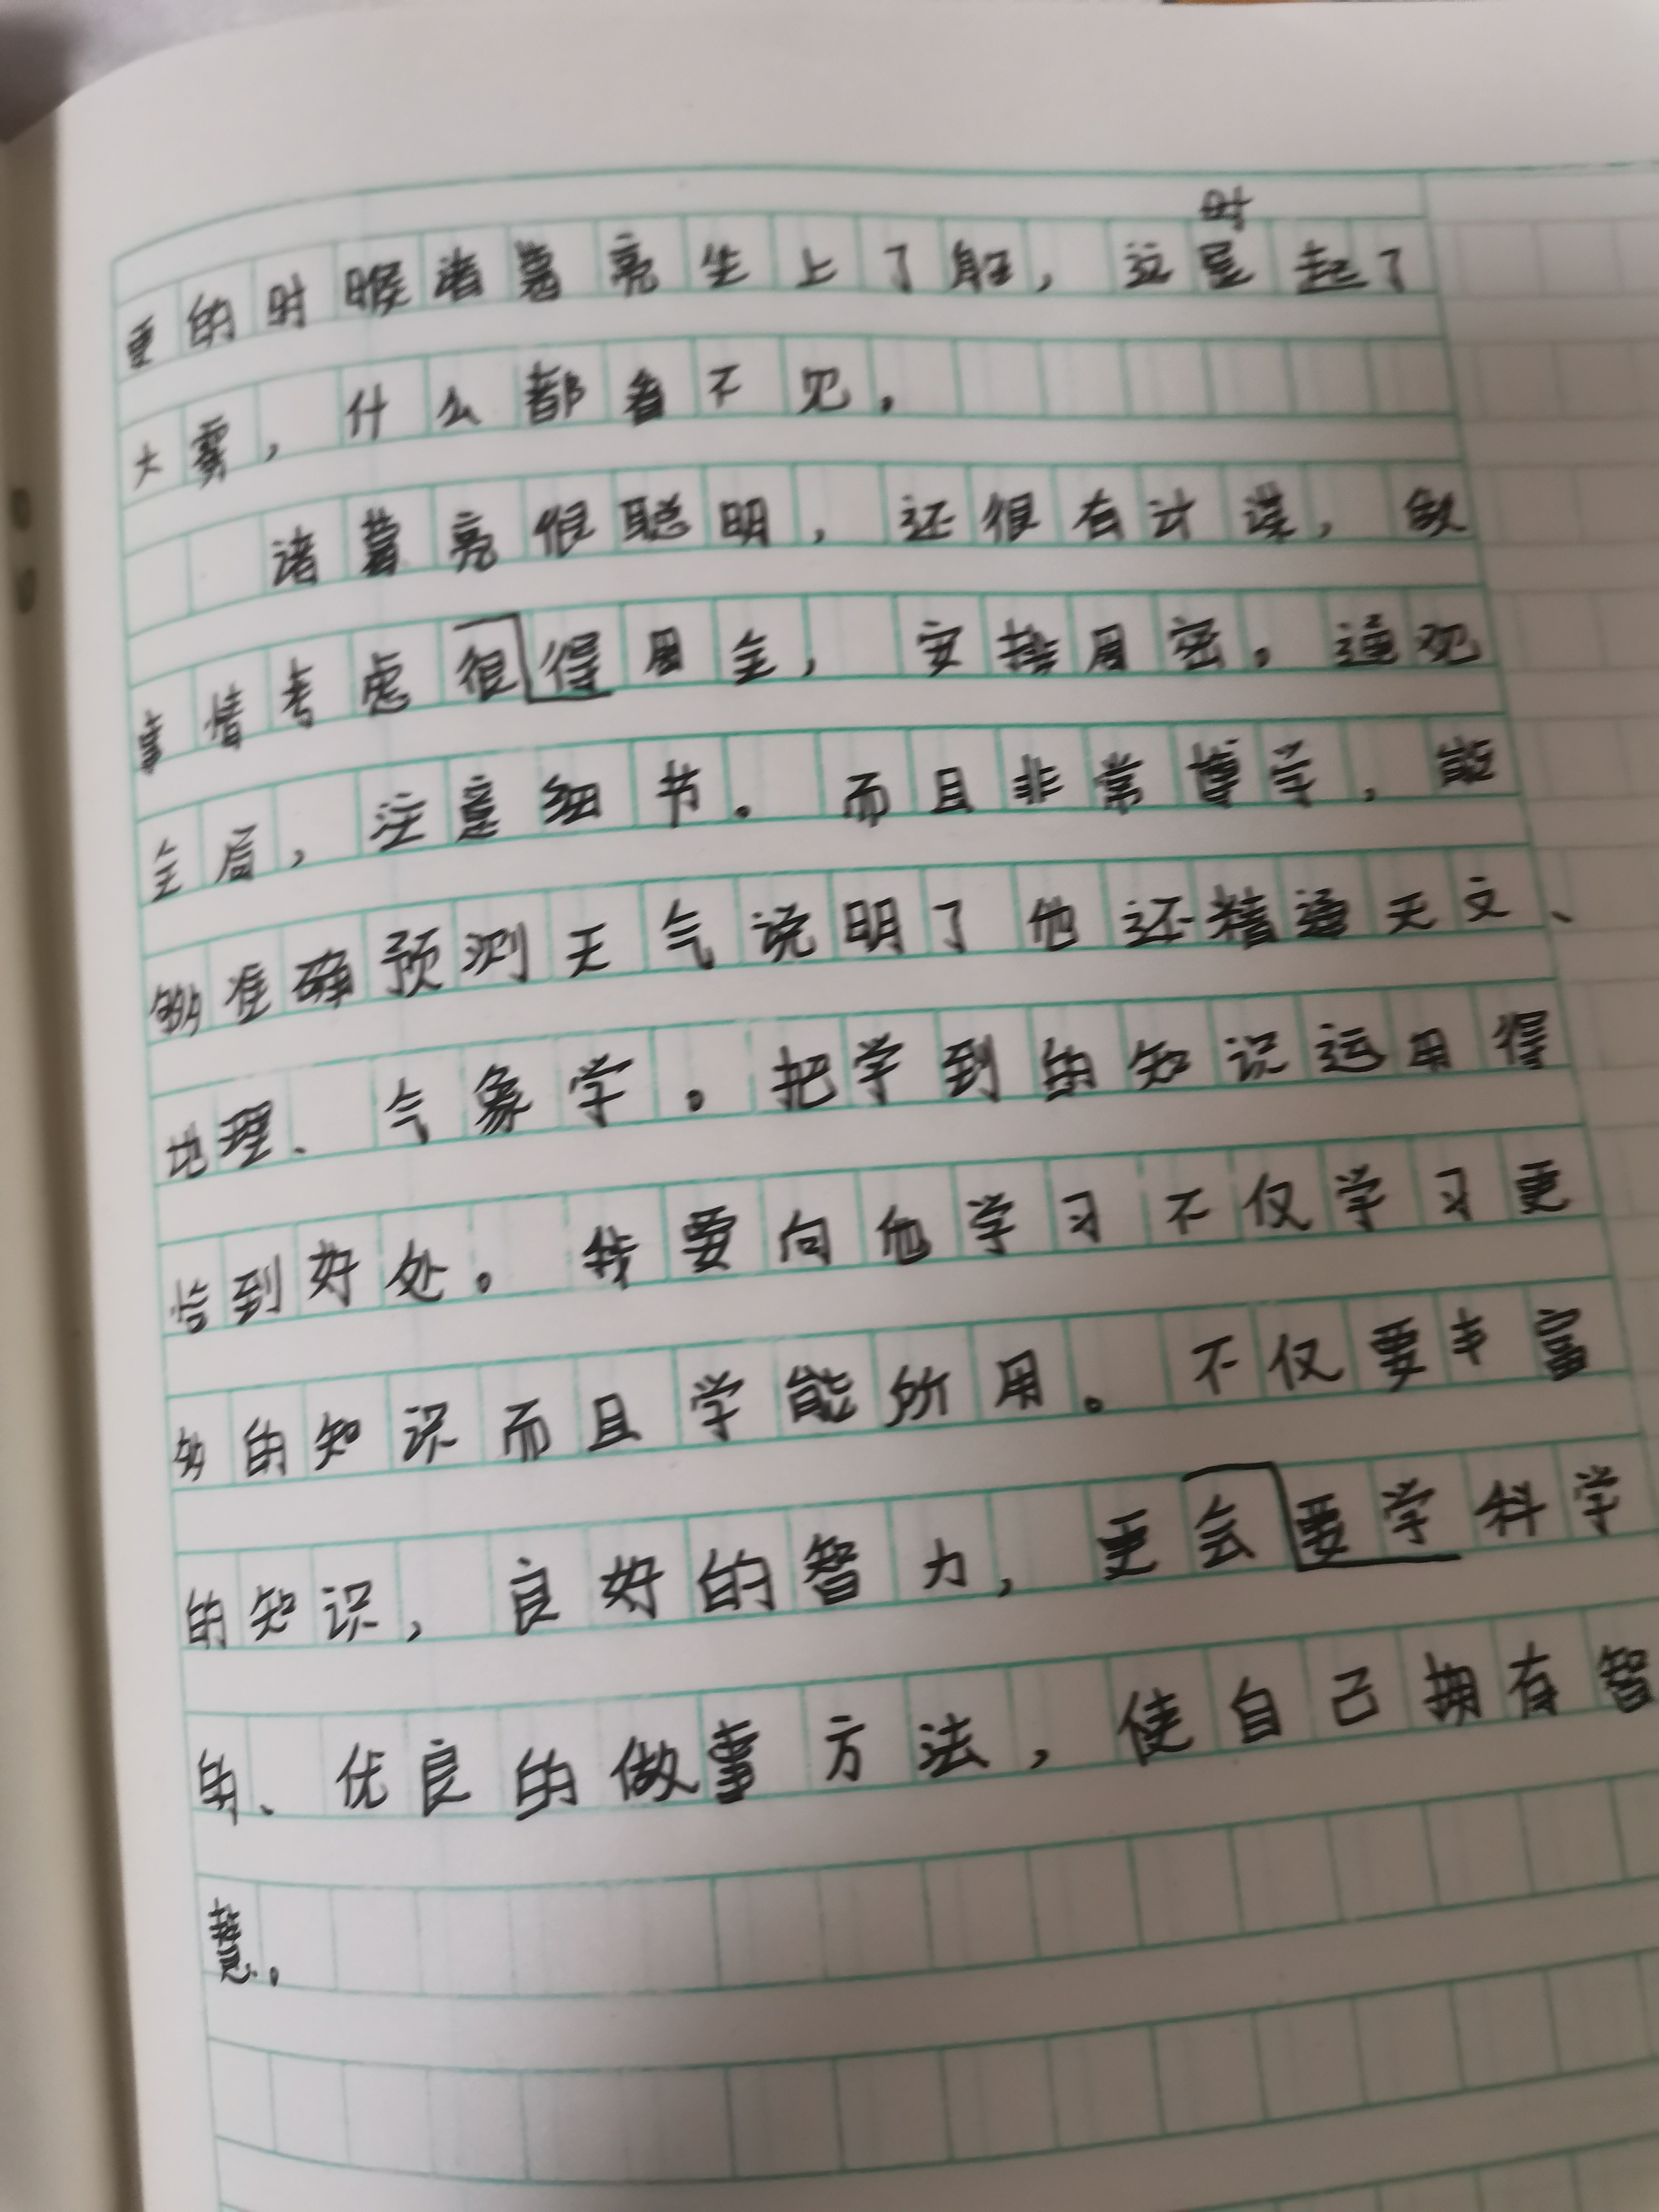 时
更的时候诸葛亮坐上了船，这是起了
大雾，什么都看不见，
诸葛亮很聪明，还很有计谋，做
事情考虑很得周全，安排周密。通观
全局，注意细节。而且非常博学，能
够准确预测天气说明了他还精通天文、
地理、气象学。把学到的知识运用得
恰到好处。我要向他学习不仅学习更
多的知识而且学能所用。不仅要丰富
的知识，良好的智力，更会要学科学
的、优良的做事方法，使自己拥有智
慧。